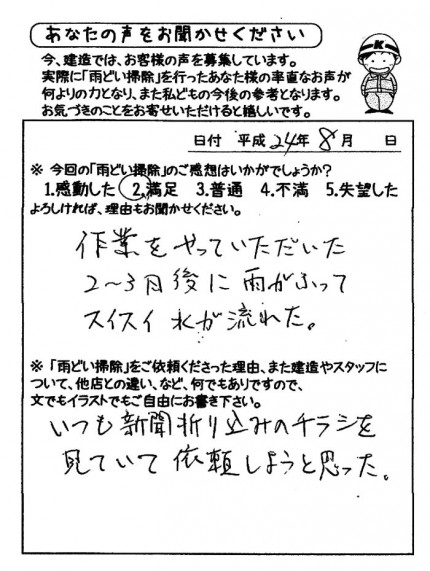 あなたの声をお聞かせください
今、建造では、お客様の声を募集しています。
実際に「雨どい掃除」を行ったあなた様の率直なお声が
何よりの力となり、また私どもの今後の参考となります。
お気づきのことをお寄せいただけると嬉しいです。
K
日付 平成24年8月 日
※ 今回の「雨どい掃除」のご感想はいかがでしょうか?
1.感動した 2.満足 3.普通 4.不満 5.失望した
よろしければ、理由もお聞かせください。
作業をやっていただいた
2〜3日後に雨がふって
スイスイ水が流れた。
※「雨どい掃除」をご依頼くださった理由、また建造やスタッフに
ついて、他店との違い、など、何でもありですので、
文でもイラストでもご自由にお書き下さい。
いつも新聞折り込みのチラシを
見ていて依頼しようと思った。